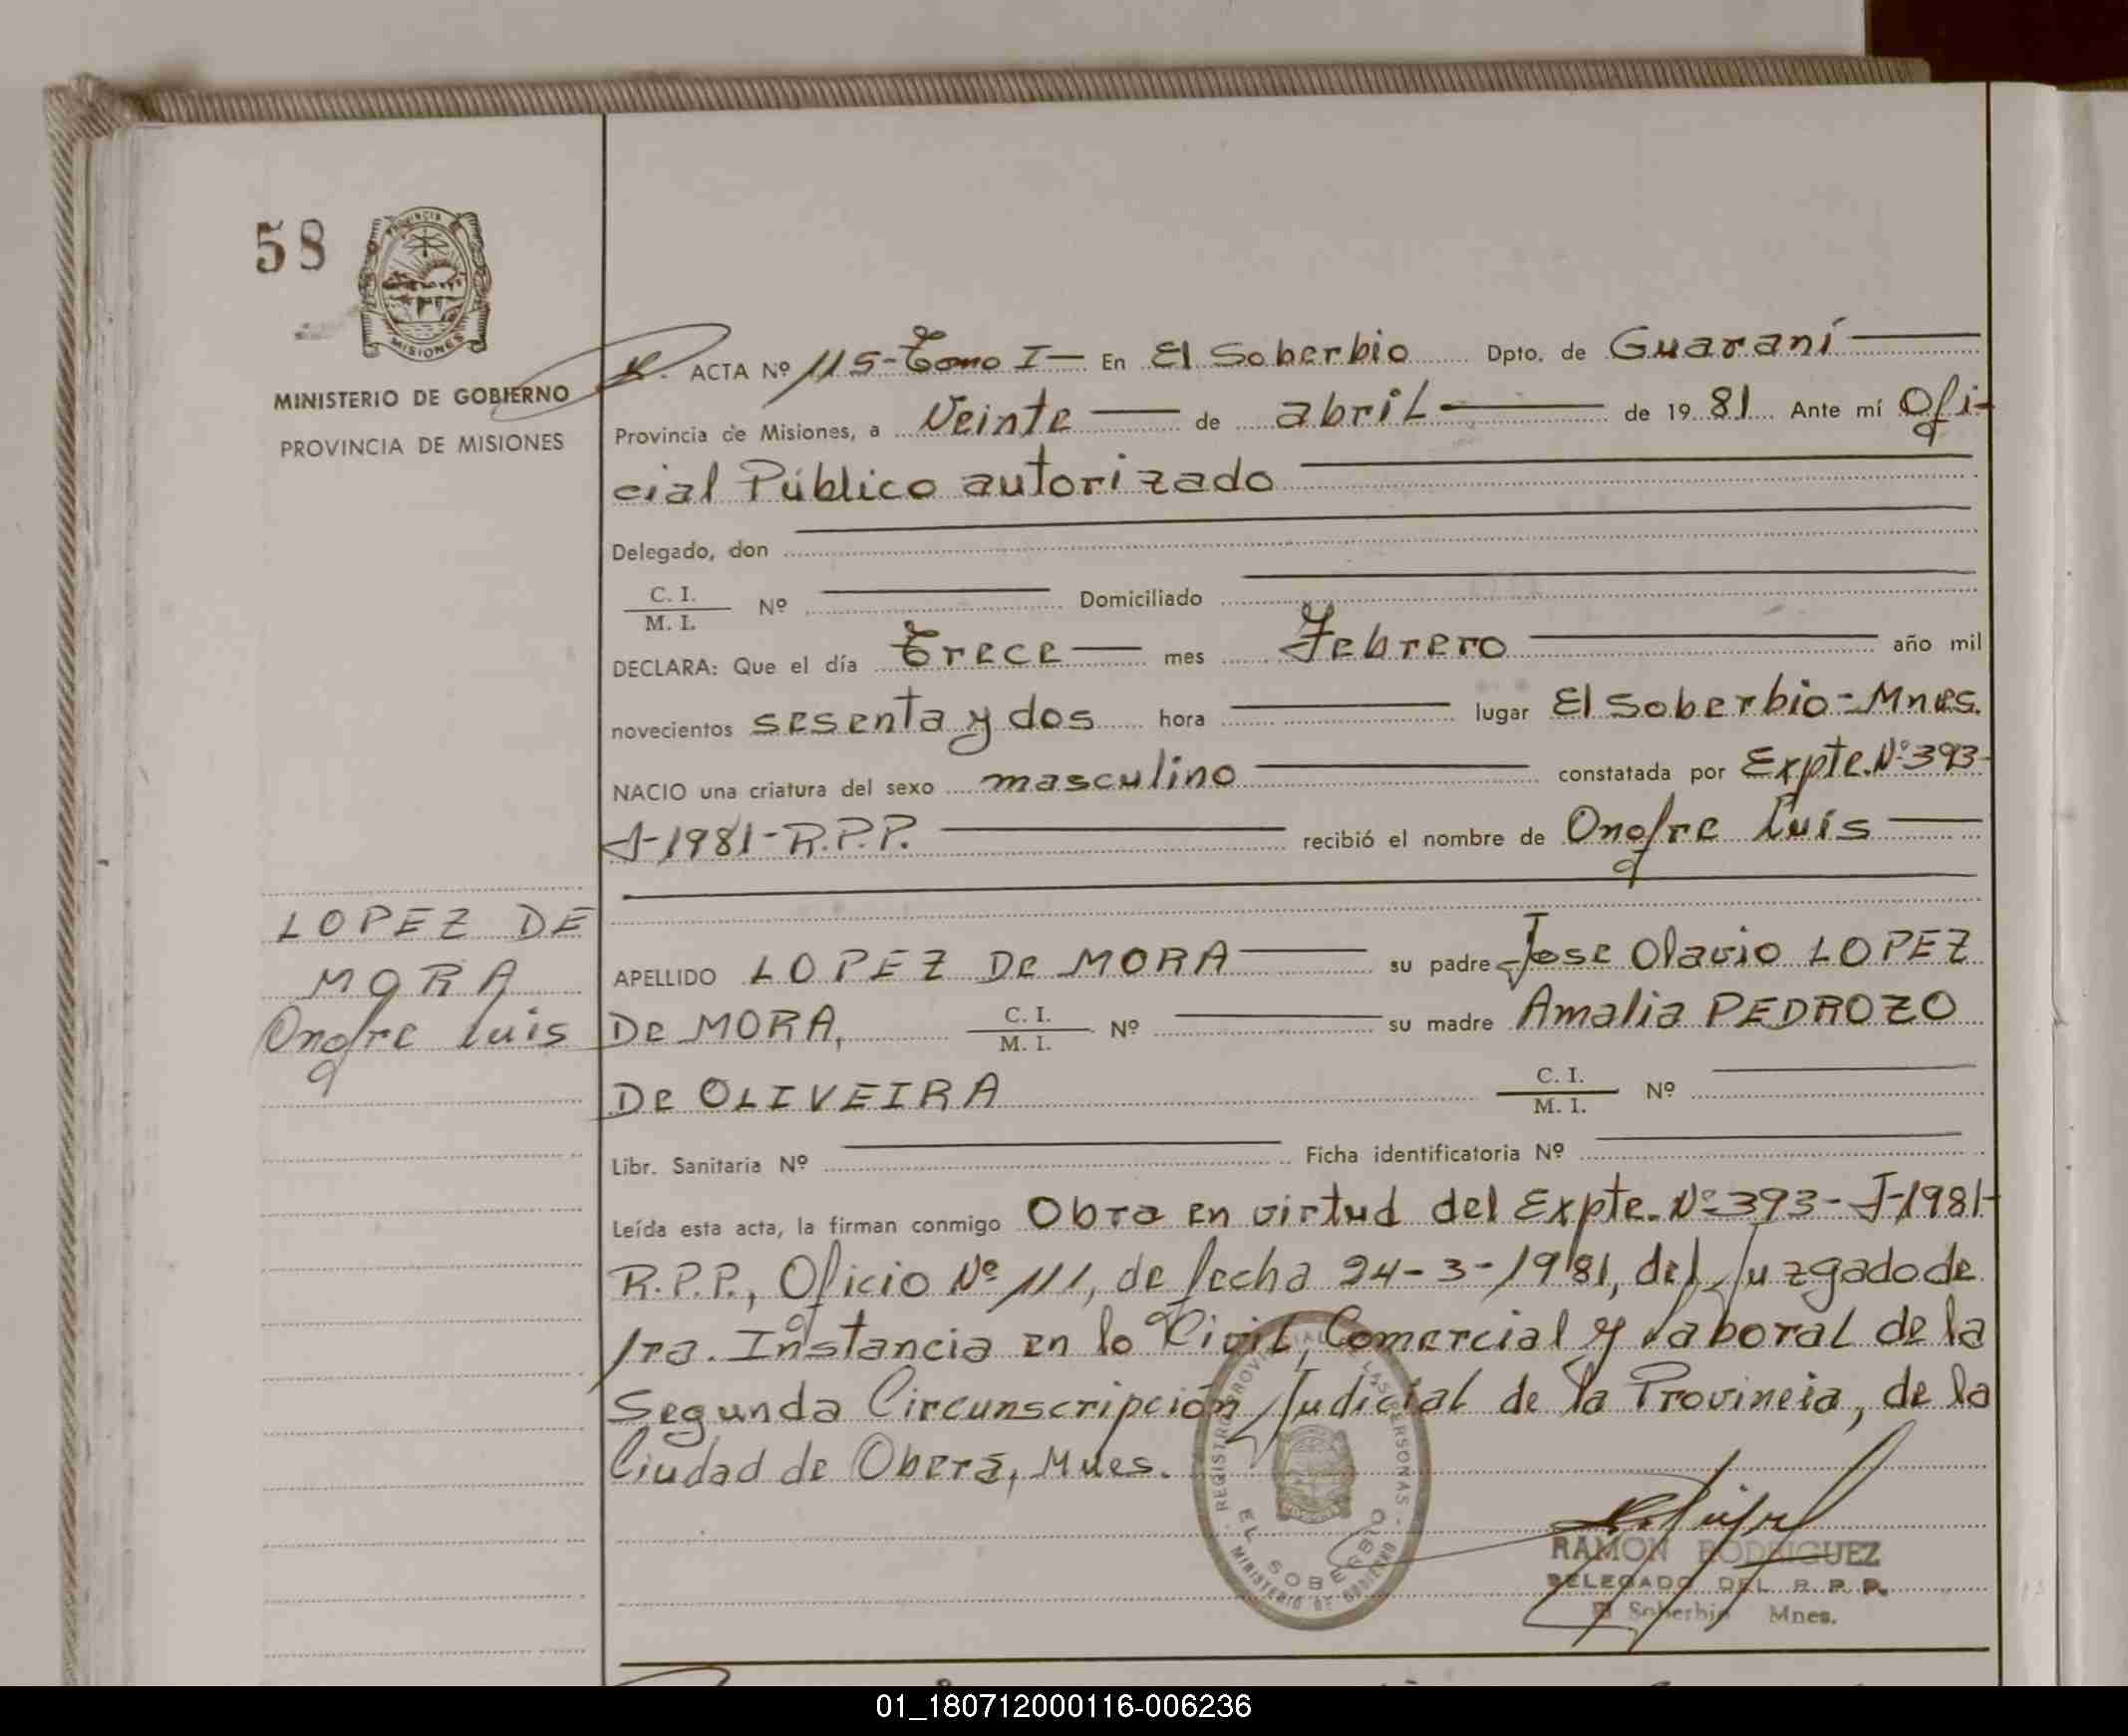 58
PROVINCIA
MISIONES
MINISTERIO DE GOBIERNO
PROVINCIA DE MISIONES
ACTA Nº 115-Tomo I- En El Soberbio Dpto. de Guaraní
Provincia de Misiones, a Veinte de abril de 19 81 Ante mí Ofi-
cial Público autorizado
Delegado, don
C. I.
M. I. Nº Domiciliado
DECLARA: Que el día Trece mes Febrero año mil
novecientos sesenta y dos hora lugar El Soberbio-Mnes.
NACIO una criatura del sexo masculino constatada por Expte. Nº 393-
J-1981-R.P.P. recibió el nombre de Onofre Luis
LOPEZ DE
MORA
Onofre Luis
APELLIDO LOPEZ De MORA su padre Jose Olavio LOPEZ
De MORA, C. I.
M. I. Nº su madre Amalia PEDROZO
De OLIVEIRA C. I.
M. I. Nº
Libr. Sanitaria Nº Ficha identificatoria Nº
Leída esta acta, la firman conmigo Obra en virtud del Expte. Nº 393-J-1981-
R.P.P., Oficio Nº 111, de fecha 24-3-1981, del Juzgado de
1ra. Instancia en lo Civil, Comercial y Laboral de la
Segunda Circunscripción Judicial de la Provincia, de la
Ciudad de Oberá, Mnes.
REGISTRO PROVINCIAL DE LAS PERSONAS
EL SOBERBIO
MINISTERIO DE GOBIERNO
RAMON RODRIGUEZ
DELEGADO DEL R. P. P.
El Soberbio Mnes.
01_180712000116-006236